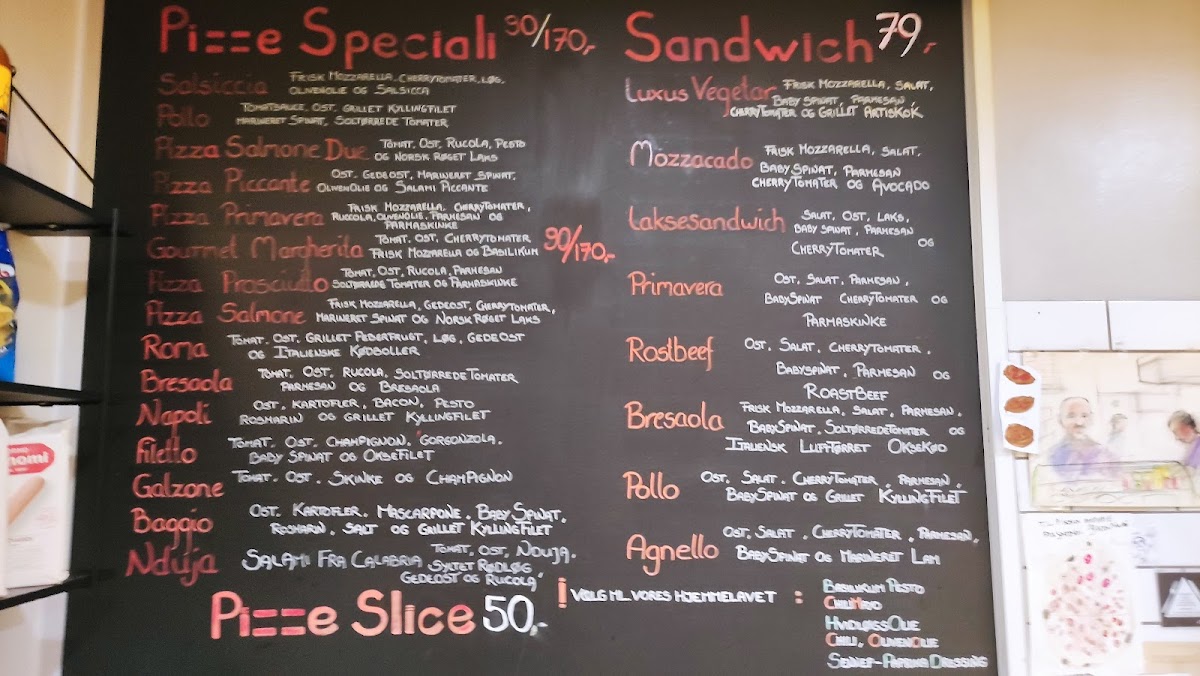 Pizze Speciali 90/170,-
Salsiccia Frisk Mozzarella, Cherrytomater, Løg,
Olivenolie og Salsicca
Pollo Tomatsauce, Ost, Grillet Kyllingfilet
Marineret Spinat, Soltørrede Tomater
Pizza Salmone Due Tomat, Ost, Rucola, Pesto
og Norsk Røget Laks
Pizza Piccante Ost, Gedeost, Marineret Spinat,
Olivenolie og Salami Piccante
Pizza Primavera Frisk Mozzarella, Cherrytomater,
Ruccola, Olivenolie, Parmesan og
Parmaskinke
Gourmet Margherita Tomat, Ost, Cherrytomater
Frisk Mozzarella og Basilikum 90/170,-
Pizza Prosciutto Tomat, Ost, Rucola, Parmesan
Soltørrede Tomater og Parmaskinke
Pizza Salmone Frisk Mozzarella, Gedeost, Cherrytomater,
Marineret Spinat og Norsk Røget Laks
Roma Tomat, Ost, Grillet Peberfrugt, Løg, Gedeost
og Italienske Kødboller
Bresaola Tomat, Ost, Rucola, Soltørrede Tomater
Parmesan og Bresaola
Napoli Ost, Kartofler, Bacon, Pesto
Rosmarin og Grillet Kyllingfilet
Filetto Tomat, Ost, Champignon, Gorgonzola,
Baby Spinat og Oksefilet
Galzone Tomat, Ost, Skinke og Champignon
Baggio Ost, Kartofler, Mascarpone, Baby Spinat,
Rosmarin, Salt og Grillet Kyllingfilet
Nduja Salami fra Calabria Tomat, Ost, Nduja,
Syltet Rødløg
Gedeost og Rucola
Pizze Slice 50,-
Sandwich 79,-
Luxus Vegetar Frisk Mozzarella, Salat,
Baby Spinat, Parmesan
Cherrytomater og Grillet Artiskok
Mozzacado Frisk Mozzarella, Salat,
Baby Spinat, Parmesan
Cherrytomater og Avocado
Laksesandwich Salat, Ost, Laks,
Baby Spinat, Parmesan
og
Cherrytomater
Primavera Ost, Salat, Parmesan,
BabySpinat Cherrytomater og
Parmaskinke
Rostbeef Ost, Salat, Cherrytomater,
Babyspinat, Parmesan og
Roastbeef
Bresaola Frisk Mozzarella, Salat, Parmesan,
BabySpinat, Soltørredetomater og
Italiensk Lufttørret Oksekød
Pollo Ost, Salat, Cherrytomater, Parmesan,
BabySpinat og Grillet Kyllingfilet
Agnello Ost, Salat, Cherrytomater, Parmesan,
BabySpinat og Marineret Lam
! Vælg ml. vores hjemmelavet : Basilikum Pesto
ChiliMayo
HvidløgsOlie
Chili, OlivenOlie
Sennep-Paprika Dressing